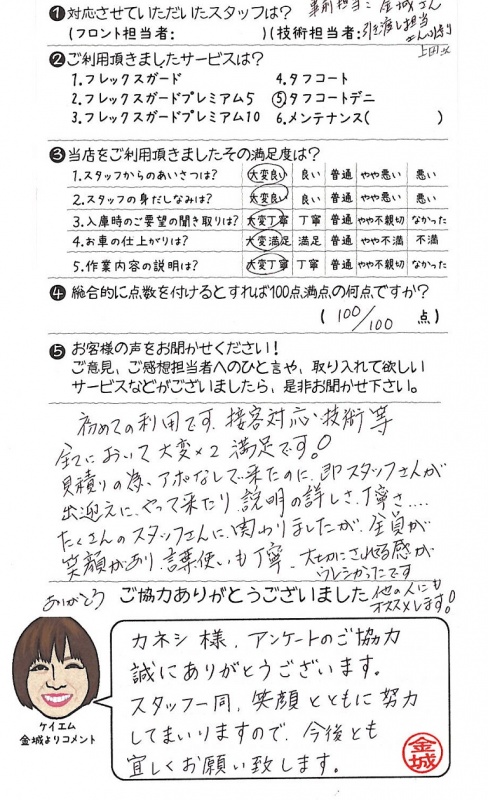 ❶対応させていただいたスタッフは?
事前担当:金城さん
(フロント担当者: )(技術担当者:引き渡し担当
❷ご利用頂きましたサービスは?
1.フレックスガード 4.タフコート
2.フレックスガードプレミアム5 ⑤タフコートデニ
3.フレックスガードプレミアム10 6.メンテナンス( )
❸当店をご利用頂きましたその満足度は?
1.スタッフからのあいさつは? 大変良い 良い 普通 やや悪い 悪い
2.スタッフの身だしなみは? 大変良い 良い 普通 やや悪い 悪い
3.入庫時のご要望の聞き取りは? 大変丁寧 丁寧 普通 やや不親切 なかった
4.お車の仕上がりは? 大変満足 満足 普通 やや不満 不満
5.作業内容の説明は? 大変丁寧 丁寧 普通 やや不親切 なかった
❹総合的に点数を付けるとすれば100点満点の何点ですか?
( 100/100 点)
❺お客様の声をお聞かせください!
ご意見、ご感想担当者へのひと言や、取り入れて欲しい
サービスなどがございましたら、是非お聞かせ下さい。
初めての利用です、接客対応、技術等
全てにおいて大変×2 満足です。!
見積りの為、アポなしで来たのに、即スタッフさんが
出迎えに、やって来たり、説明の詳しさ、丁寧さ....
たくさんのスタッフさんに、関わりましたが、全員が
笑顔があり、言葉使いも丁寧、大切にされる感が
ウレシかったです
ありがとう ご協力ありがとうございました 他の人にも
オススメします!
カネシ様、アンケートのご協力
誠にありがとうございます。
スタッフ一同、笑顔とともに努力
してまいりますので、今後とも
宜しくお願い致します。
ケイエム
金城よりコメント
金城